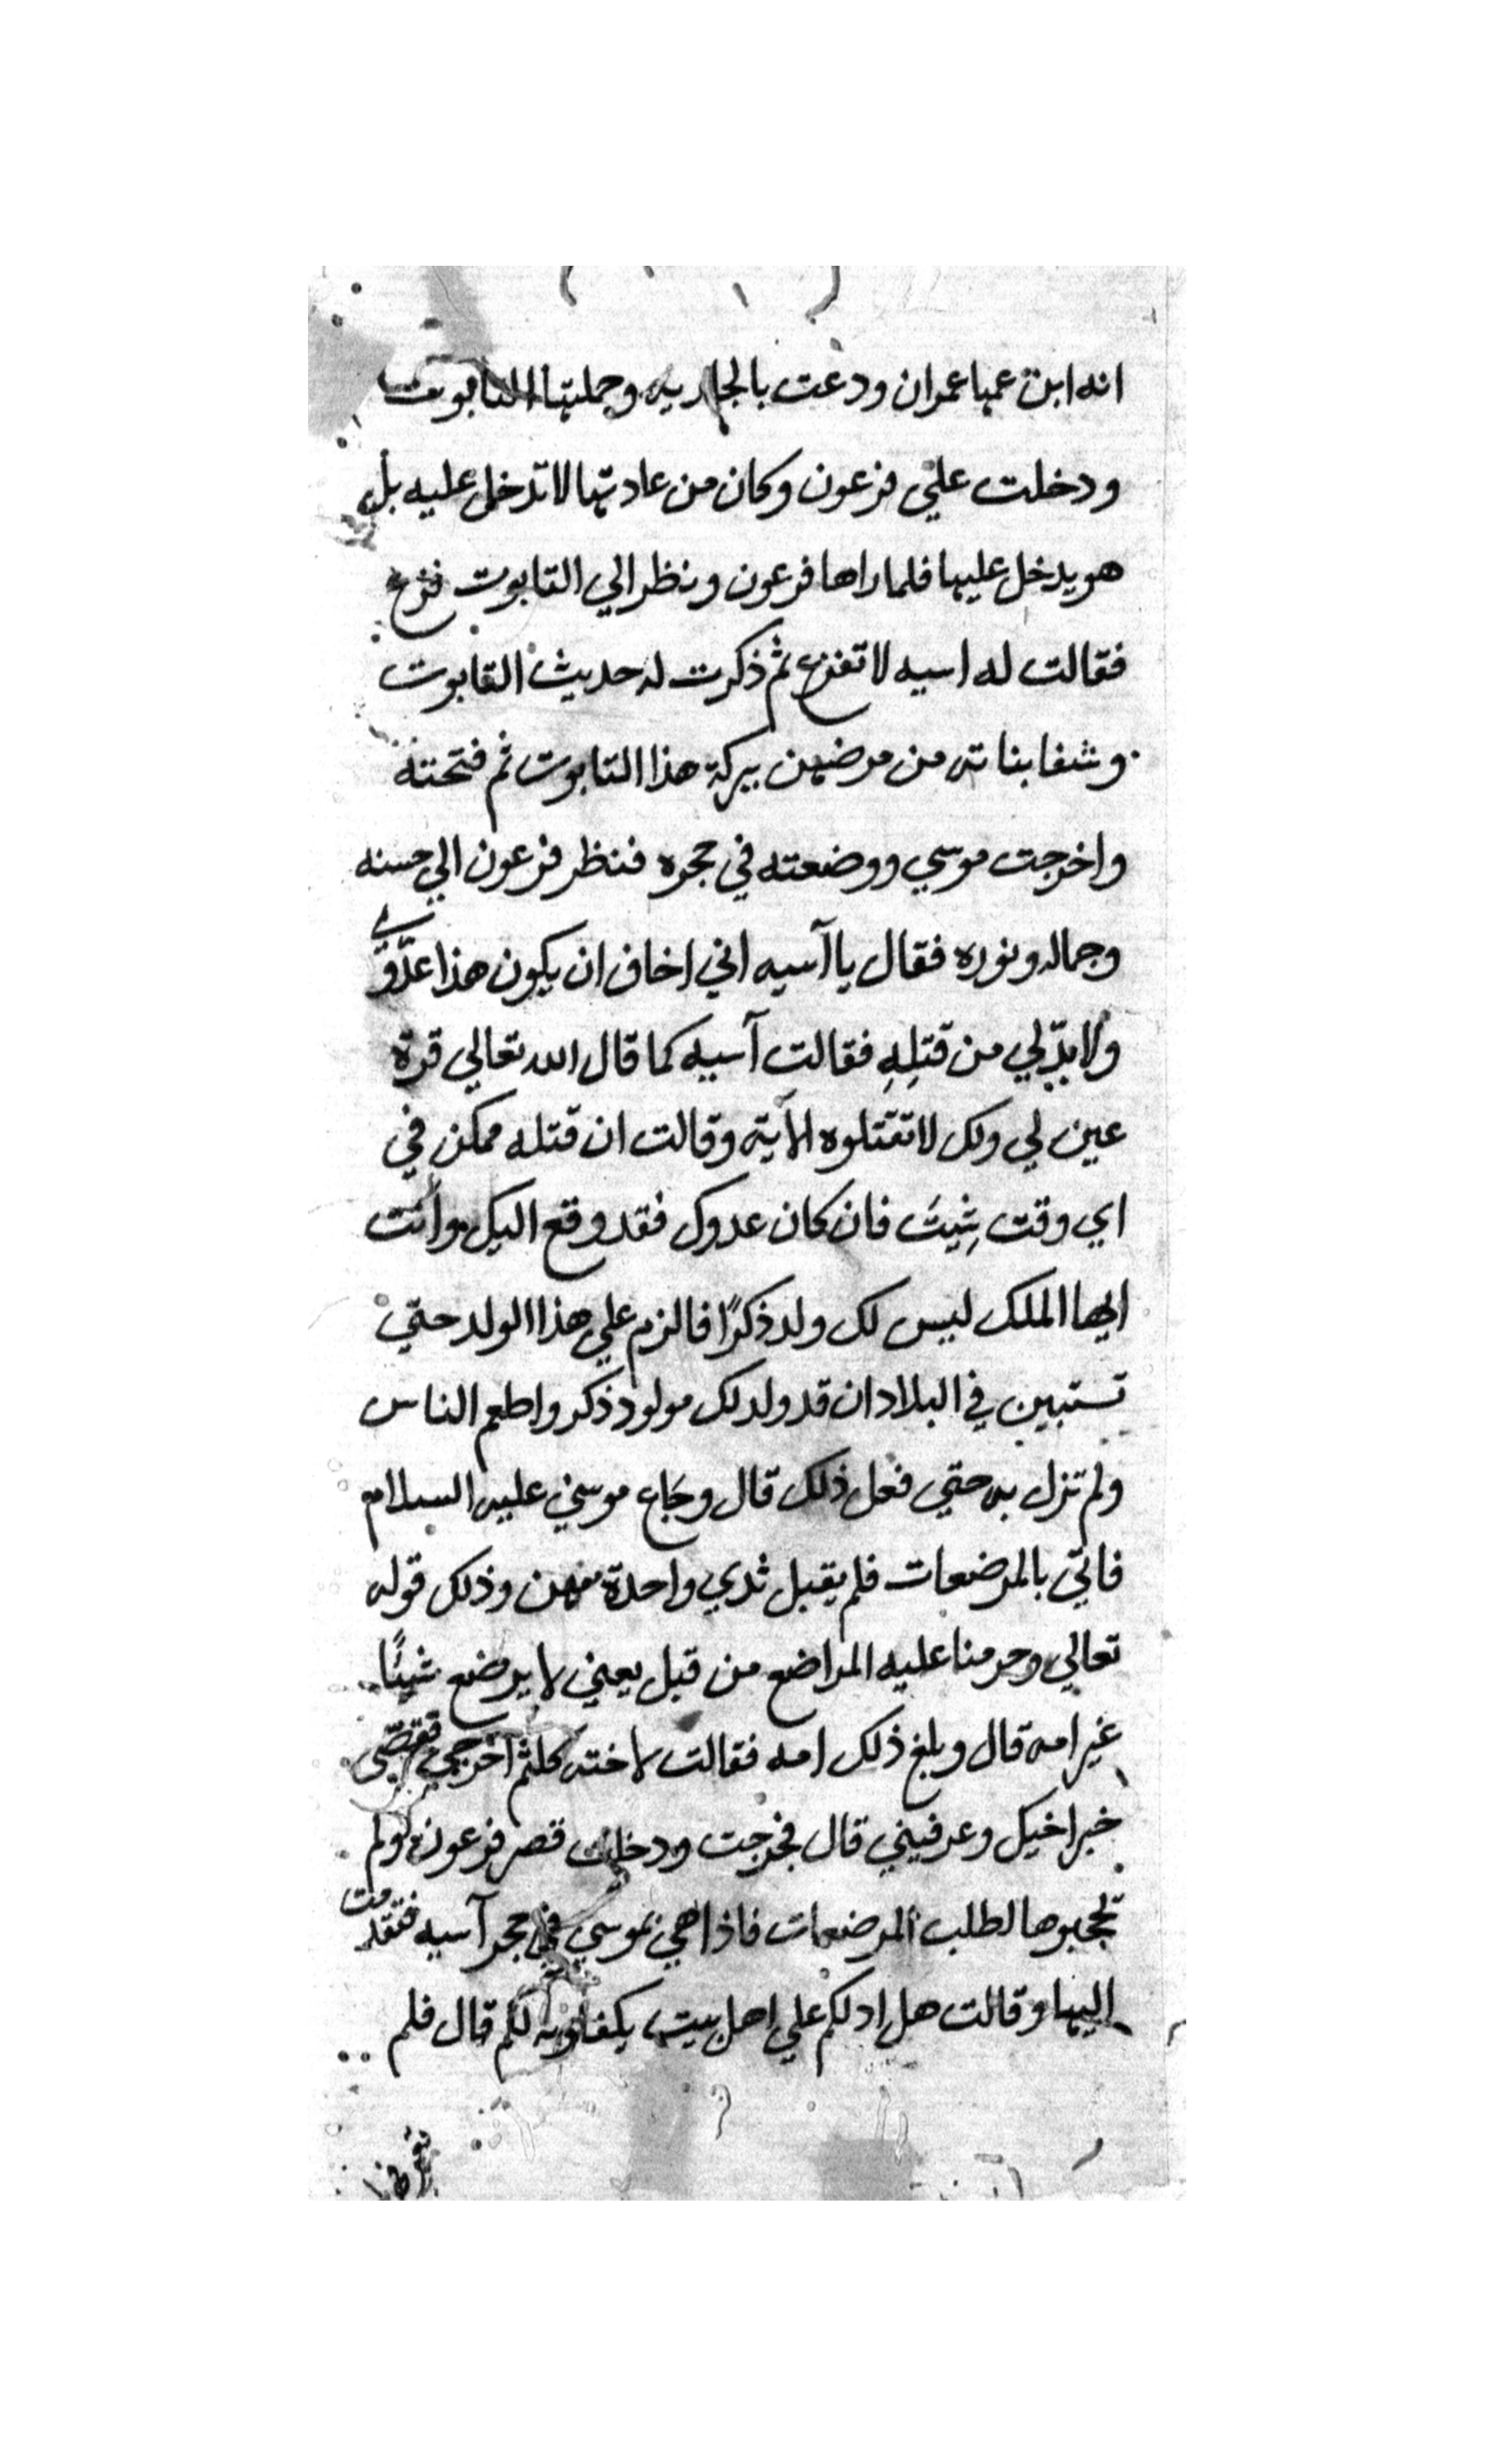 انه ابن عمها عمران ودعت بالجاريه وحملتها التابوت
ودخلت علي فرعون وكان من عادتها لا تدخل عليه بل
هو يدخل عليها فلما راها فرعون ونظر الي التابوت فزع
فقالت له اسيه لا تفزع ثم ذكرت له حديث التابوت
وشفا بناته من مرضهن ببركة هذا التابوت ثم فتحته
واخرجت موسي ووضعته في حجره فنظر فرعون الي حسنه
وجماله ونوره فقال يا آسيه اني اخاف ان يكون هذا عدّوّي
ولا بدّ لي من قتلِهِ فقالت آسيه كما قال الله تعالي قرّة
عين لي ولك لا تقتلوه الآية وقالت ان قتله ممكن في
اي وقت شِيتَ فان كان عدوك فقد وقع اليك وانت
ايها الملك ليس لك ولد ذكرًا فالزم علي هذا الولد حتي
تستبين في البلاد ان قد ولد لك مولود ذكر واطعم الناس
ولم تزل به حتي فعل ذلك قال وجاع موسي عليه السلام
فاتي بالمرضعات فلم يقبل ثدي واحدة منهن وذلك قوله
تعالي وحرمنا عليه المراضع من قبل يعني لا يرضع شيئًا
غير امه قال وبلغ ذلك امه فقالت لاخته كلثم اخرجي فقصّي
خبر اخيك وعرفيني قال فخرجت ودخلت قصر فرعون ولم
تحجبوها لطلب المرضعات فاذا هي بموسي في حجر آسيه فتقدمت
اليها وقالت هل ادلكم علي اهل بيت يكفلونه لكم قال فلم